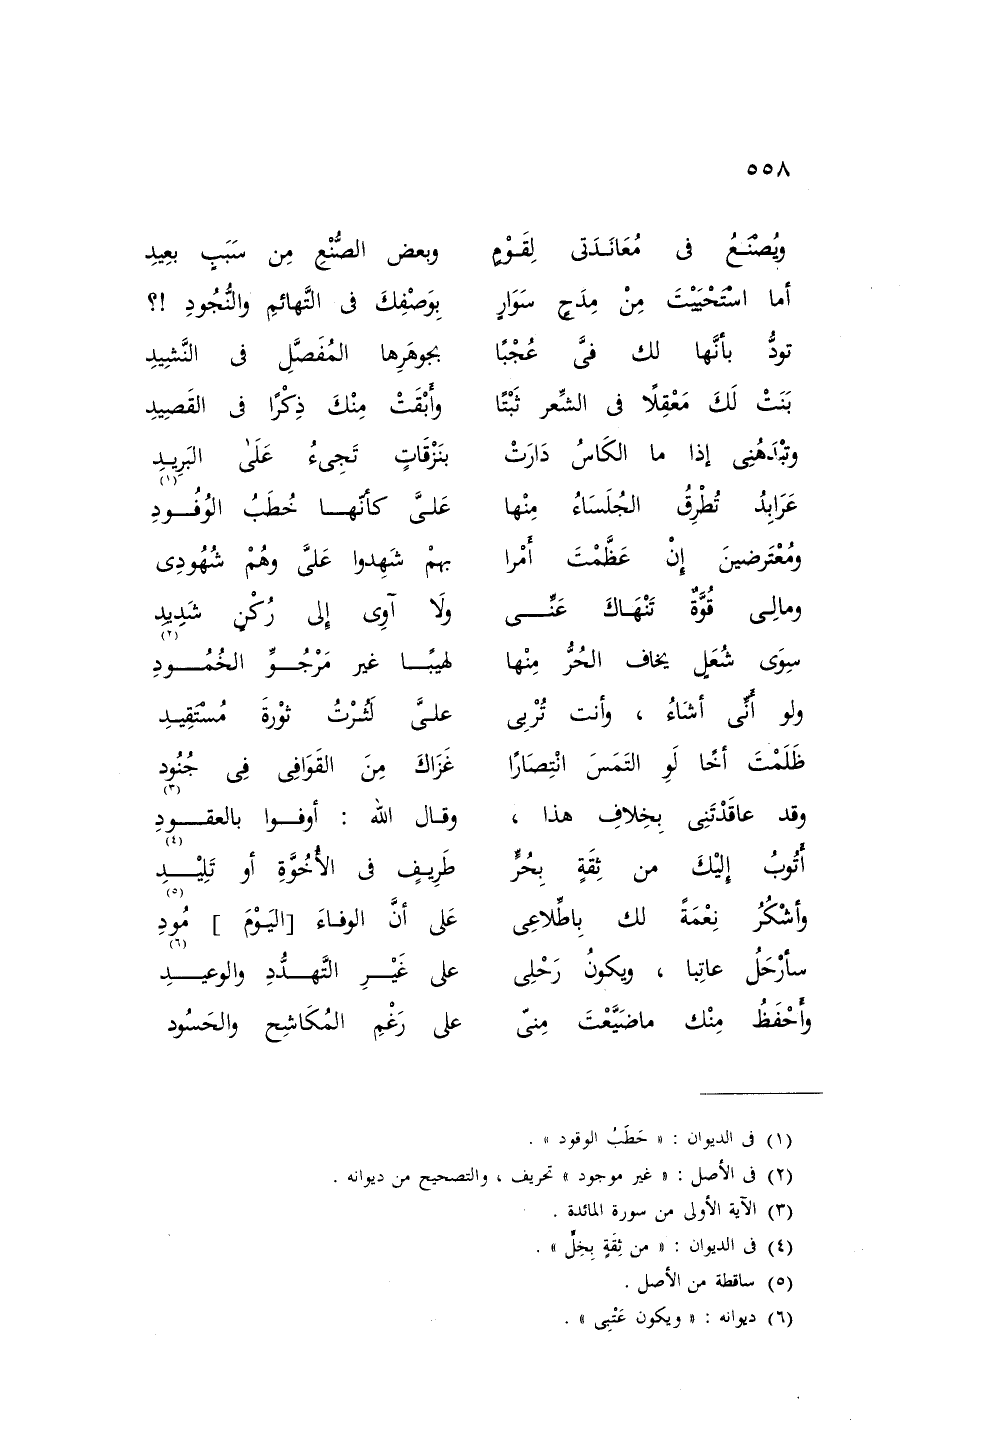 ٥٥٨
ويُصْنَعُ فى مُعَانَدَتى لِقَوْمٍ وبعض الصُّنْعِ مِن سَبَبٍ بعِيدِ
أما اسْتَحْيَيْتَ مِنْ مِدَحٍ سَوَارٍ بِوَصْفِكَ فى التَّهائمِ والنُّجُودِ !؟
تودُّ بأنَّها لك فىَّ عُجْبًا بجوهَرِها المُفَصَّلِ فى النَّشِيدِ
بَنَتْ لَكَ مَعْقِلًا فى الشِّعر ثَبْتًا وأَبْقَتْ مِنْكَ ذِكْرًا فى القَصِيدِ
وتبْدَهُنِى إذا ما الكَاسُ دَارَتْ بنَزْقَاتٍ تَجِىءُ عَلَىٰ البَرِيدِ
عَرَابِدُ تُطْرِقُ الجُلَسَاءُ مِنْها عَلىَّ كأنّها خُطَبُ الوُفُودِ (١)
ومُعْتَرضينَ إِنْ عَظَّمْتَ أَمْرا بهِمْ شَهِدوا عَلىَّ وهُمْ شُهُودِى
ومالِى قُوَّةٌ تَنْهَاكَ عَنِّى ولَا آوِى إِلى رُكْنٍ شَدِيدِ
سِوَى شُعَلٍ يخاف الحُرُّ مِنْها لهيبًا غير مَرْجُوِّ الخُمُودِ (٢)
ولو أَنِّى أشَاءُ ، وأنت تُرْبِى علىَّ لَثُرْتُ ثوْرةَ مُسْتَقِيدِ
ظَلَمْتَ أخًا لَوِ التَمَسَ انْتِصَارًا غَزَاكَ مِنَ القَوَافِى فِى جُنُودِ
وقد عاقَدْتَنِى بِخِلافِ هذا ، وقال الله : أوفوا بالعقودِ (٣)
أَتُوبُ إِلَيْكَ من ثِقَةٍ بِحُرٍّ طَرِيفٍ فى الأُخُوَّةِ أو تَلِيْدِ (٤)
وأشْكُرُ نِعْمَةً لك بِاطِّلاعِى عَلى أنَّ الوفاءَ [اليَوْمَ ] مُودِ (٥)
سأرْحَلُ عاتِبا ، ويكونُ رَحْلِى على غَيْرِ التَّهدُّدِ والوعيدِ (٦)
وأَحْفَظُ مِنْك ماضَيَّعْتَ مِنىّ على رَغْمِ المُكَاشِحِ والحَسُودِ
(١) فى الديوان : « حَطَبُ الوقود » .
(٢) فى الأصل : « غير موجود » تحريف ، والتصحيح من ديوانه .
(٣) الآية الأولى من سورة المائدة .
(٤) فى الديوان : « من ثِقَةٍ بِخِلٍّ » .
(٥) ساقطة من الأصل .
(٦) ديوانه : « ويكون عَتْبِى » .